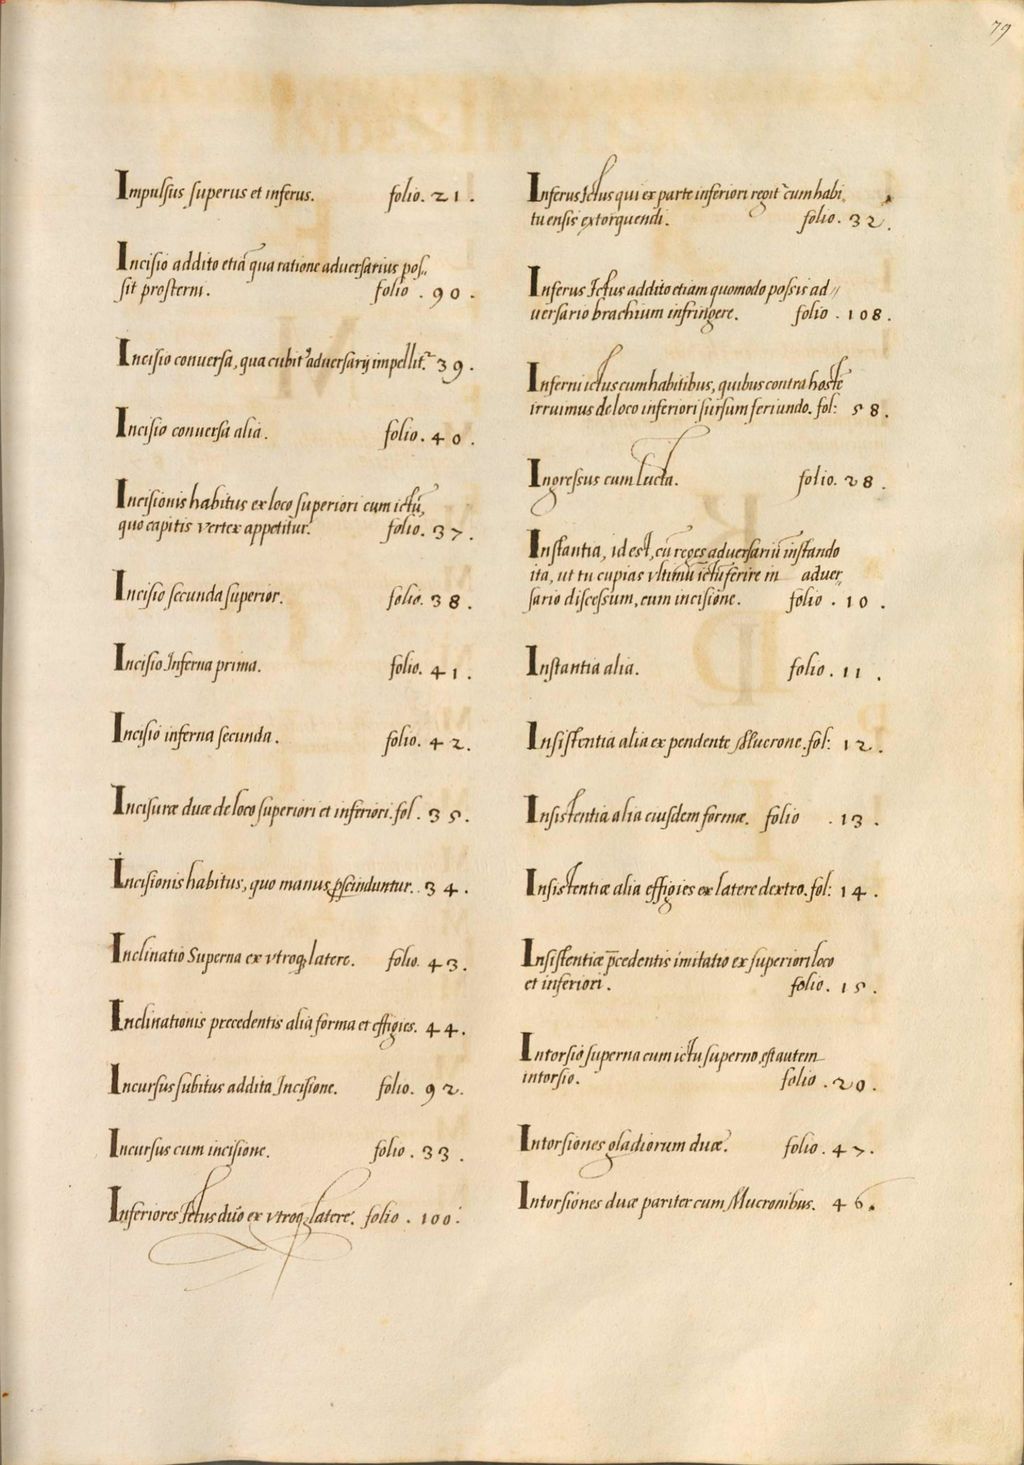 79
Impulsus superus et inferus. folio. 21.
Incisio addito etiā qua ratione adversarius pos,,
sit prosterni. folio. 90.
Incisio conversa, qua cubitꝰ adversarij impellit͛. 39.
Incisio conversa alia. folio. 40.
Incisionis habitus ex loco superiori cum ictu,
quo capitis vertex appetitur. folio. 37.
Incisio secunda superior. folio. 38.
Incisio Inferna prima. folio. 41.
Incisio inferna secunda. folio. 42.
Incisuræ duæ de loco superiori et inferiori. fol. 35.
Incisionis habitus, quo manus ꝓscinduntur. 34.
Inclinatio Superna ex vtroq, latere. folio. 43.
Inclinationis precedentis alia forma et effigies. 44.
Incursus subitus addita Incisione. folio. 92.
Incursus cum incisione. folio. 33.
Inferiores Ictus duo ex vtroq, latere. folio. 100.
Inferus Ictus qui ex parte inferiori regit͛ cum habi,
tu ensis extorquendi. folio. 32.
Inferus Ictus addito etiam quomodo possis ad//
versario brachium infringere. folio. 108.
Inferni ictus cum habitibus, quibus contra hostē
irruimus de loco inferiori sursum feriundo. fol: 58.
Ingressus cum lucta. folio. 28.
Instantia, id est, cū reges adversariū instando
ita, ut tu cupias vltimū ictū ferire in aduer,,
sario discessum, cum incisione. folio. 10.
Instantia alia. folio. 11.
Insistentia alia ex pendente Mucrone. fol: 12.
Insistentia alia eiusdem formæ. folio. 13.
Insistentiæ alia effigies ex latere dextro. fol: 14.
Insistentiæ p̄cedentis imitatio ex superiori loco
et inferiori. folio. 15.
Intorsio superna cum ictu superno, est autem
intorsio. folio. 20.
Intorsiones gladiorum duæ. folio. 47.
Intorsiones duæ pariter cum Mucronibus. 46.